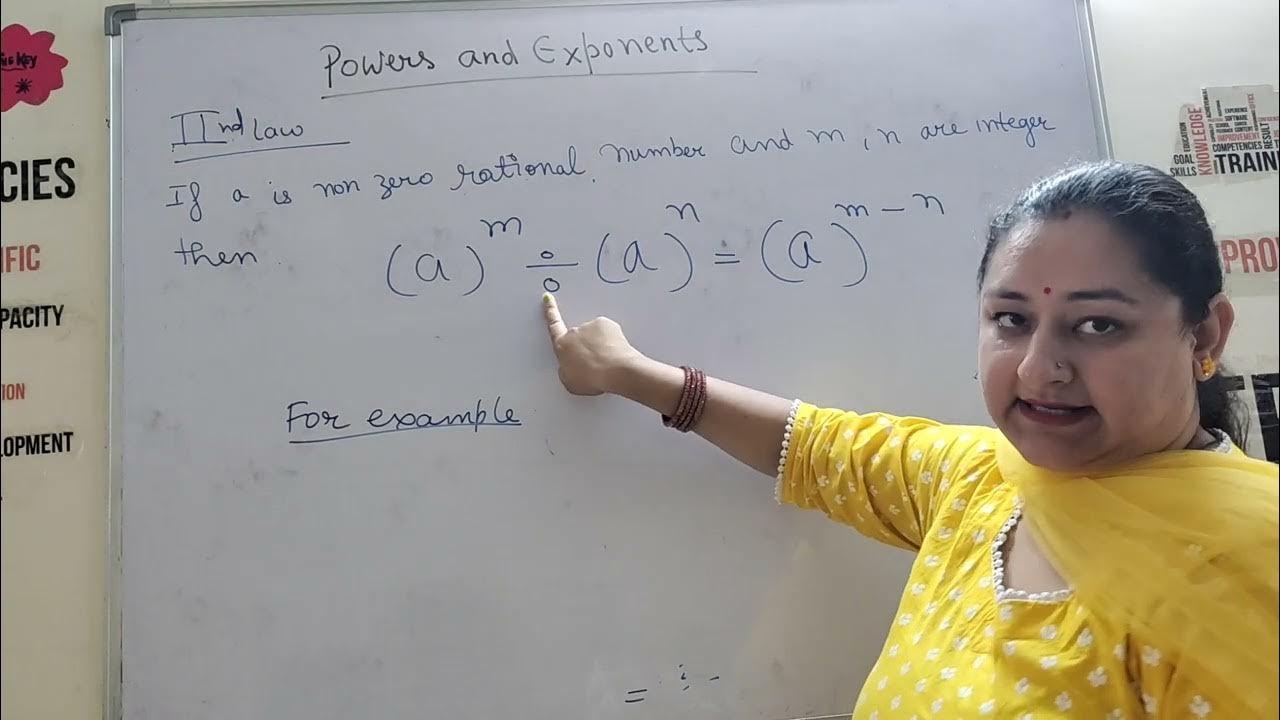 Powers and Exponents
IInd Law
If a is non zero rational. number and m, n are integer
then (a)^m ÷ (a)^n = (a)^m-n
For example
=
KEY
CIES
IFIC
PACITY
ION
LOPMENT
EDUCATION
GOAL
SKILLS
KNOWLEDGE
EXPERIENCE
SOFTWARE
IMPROVEMENT
COMPETENCIES
RESULT
TRAIN
PRO